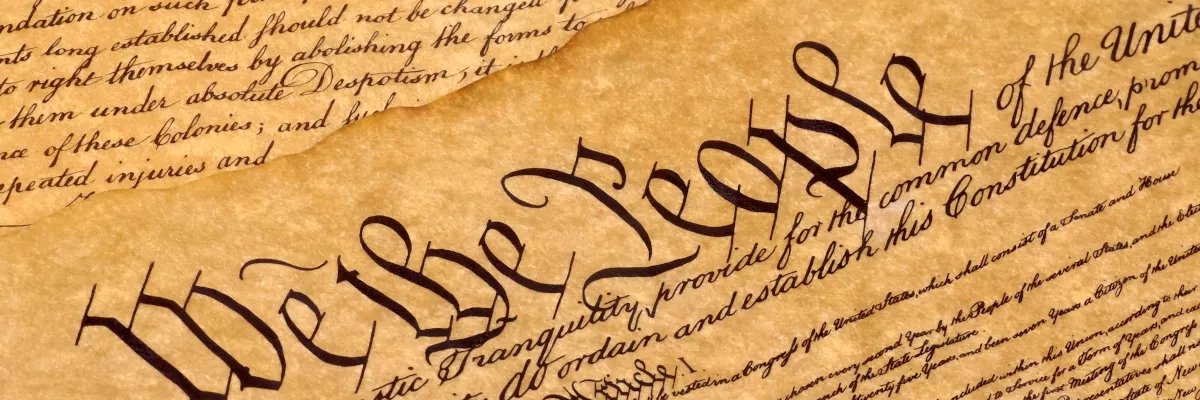 ndation on such
nts long established should not be changed
to right themselves by abolishing the forms to
them under absolute Despotism, it
of these Colonies; and
epeated injuries and
We the People
of the Unit
tic Tranquility, provide for the common defence, prom
do ordain and establish this Constitution for the
Article I
be vested in a Congress of the United States, which shall consist of a Senate and House
chosen every second Year by the People of the several States, and the Elec
anch of the State Legislature.
twenty five Years, and been seven Years a Citizen of the United
included within this Union, according to their
to Service for a Term of Years, and
the first Meeting of the Congress
State of New